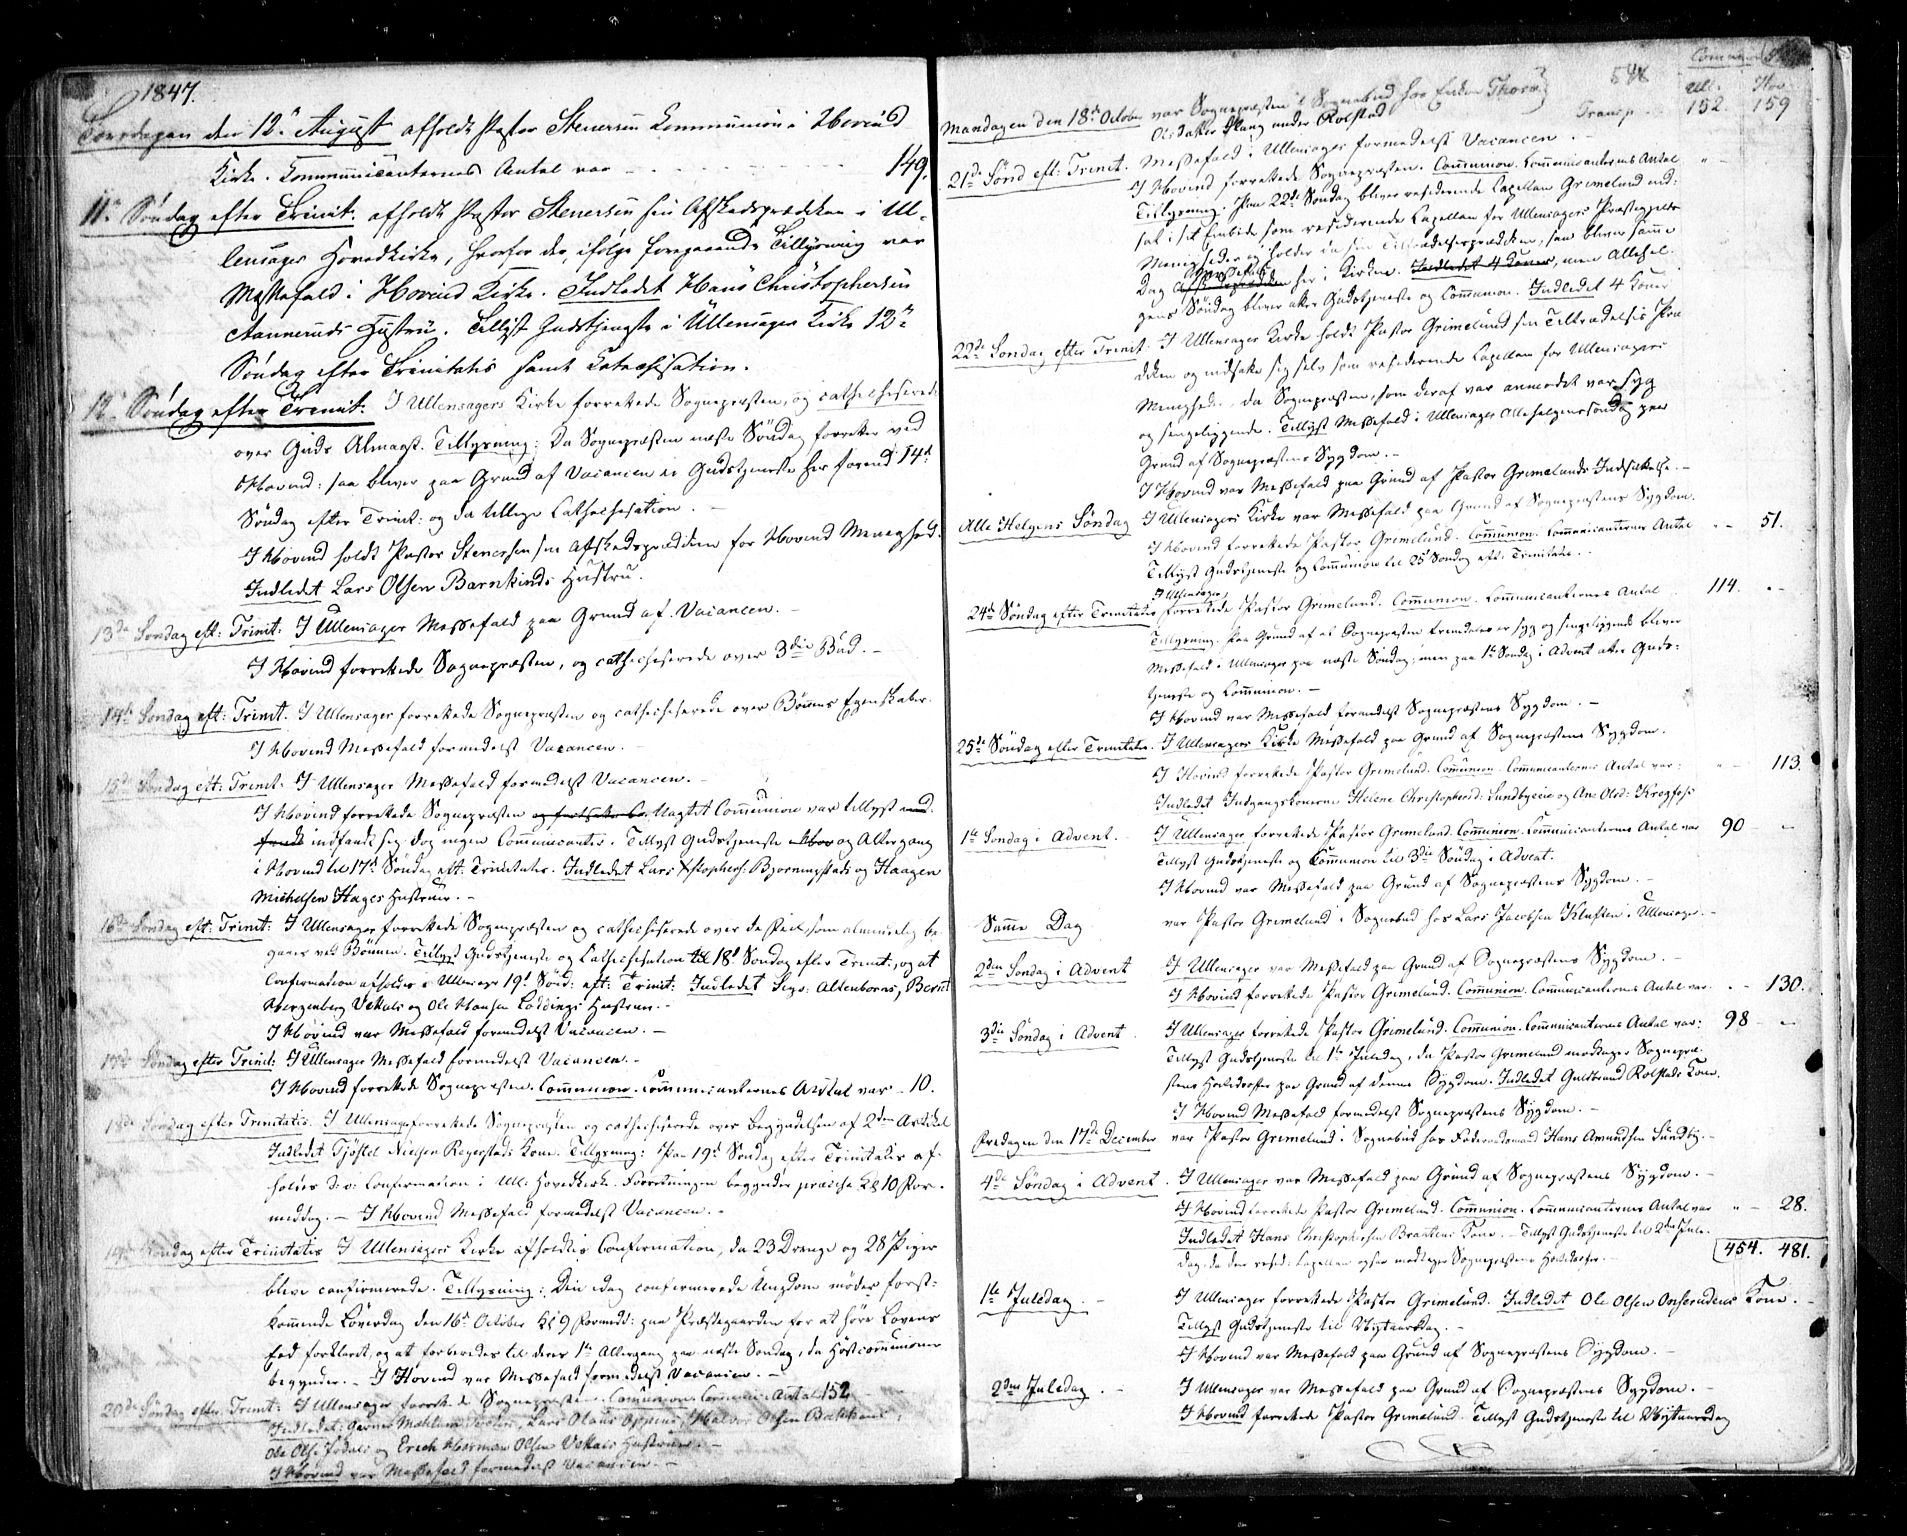 1847.
Torsdagen den 12te August afholdt Pastor Stenersen Kommunion i Hovind
Kirke. Kommunicanternes Antal var - 149.
11te Søndag efter Trinit: afholdt Pastor Stenersen sin Afskedsprædiken i Ul-
lensagers Hovedkirke, hvorfor der, ifølge foregaaende Tillysning var
Messefald i Hovind Kirke. Indledet Hans Christophersen
Aannerud's Hustru. Tillyst Gudstjeneste i Ullensager Kirke 12te
Søndag efter Trinitatis samt Katechisation.
12te Søndag efter Trinit: I Ullensagers Kirke forrettede Sognepræsten, og cathechiserede
over Guds Almagt. Tillysning: Da Sognepræsten næste Søndag forretter ved
Hovind: saa bliver paa Grund af Vacancen ei Gudstjeneste her førend 14de
Søndag efter Trinit: og da tillige Cathechisation. -
I Hovind holdt Pastor Stenersen sin Afskedsprædiken for Hovind Menighed.
Indledet Lars Olsen Barnkinds Hustru.
13de Søndag eft: Trinit: I Ullensager Messefald paa Grund af Vacancen. -
I Hovind forrettede Sognepræsten, og cathechiserede over 3die Bud. -
14de Søndag eft: Trinit. I Ullensager forrettede Sognepræsten og cathechiserede over Bønnens Egenskaber.
I Hovind Messefald formedelst Vacancen. -
15de Søndag eft: Trinit. I Ullensager Messefald formedelst Vacancen. -
I Hovind forrettede Sognepræsten Uagtet Communion var tillyst
indfandt sig dog ingen Communicanter. Tillyst Gudstjeneste og Altergang
i Hovind til 17de Søndag eft: Trinitatis. Indledet Lars Xstophers: Bjørningstads og Haagen
Michelsen Hages Hustruer. -
16de Søndag eft: Trinit: I Ullensager forrettede Sognepræsten og cathechiserede over de som almindelig be-
gaaes ved Bønnen. Tillyst Gudstjeneste og Cathechisation til 18de Søndag efter Trinit:, og at
Confirmation afholdes i Ullensager 19de Sønd: eft: Trinit: Indledet Altenborns, Bernt
Hergenberg Vekals og Ole Hansen Løddings Hustruer. -
I Hovind var Messefald formedelst Vacancen. -
17de Søndag efter Trinit: I Ullensager Messefald formedelst Vacancen. -
I Hovind forrettede Sognepræsten. Communion. Communicanternes Antal var - 10.
18de Søndag efter Trinitatis. I Ullensager forrettede Sognepræsten og cathechiserede over Begyndelsen af 2den Artikel
Indledet Tjøstel Nielsen Rogerstads Kone. Tillysning: Paa 19de Søndag efter Trinitatis af-
holdes d: v: Confirmation i Ull: Hovedkirke. Forretningen begynder præcise Kl 10 For-
middag. - I Hovind Messefald formedelst Vacancen. -
19de Søndag efter Trinitatis I Ullensagers Kirke afholdtes Confirmation, da 23 Drenge og 28 Piger
bleve confirmerede. Tillysning: Den idag confirmerede Ungdom møder først-
kommende Løverdag den 16de October Kl 9 Formidd: paa Præstegaarden for at høre Lovens
Eed forklaret, og at forberedes til deres 1ste Altergang paa næste Søndag, da Høstcommunionen
begynder. - I Hovind var Messefald formedelst Vacancen. -
20de Søndag efter Trinit: I Ullensager forrettede Sognepræsten. Communion. Communic: Antal 152
Indledet: Lars Olsens Halvor Olsen
Ole Olsen og Erich Herman Olsen Vekals Hustruer. -
I Hovind var Messefald formedelst Vacancen. -
Communic
Ull. Hov
Mandagen den 18de October var Sognepræsten i Sognebud hos Enken Thora Transp - 152. 159
Olsdatter Plang under Rolstad
21de Sønd eft: Trinit. Messefald i Ullensager formedelst Vacancen. -
I Hovind forrettede Sognepræsten. Communion. Communicanternes Antal
Tillysning. Paa 22de Søndag bliver residerende Capellan Grimelund ind-
sat i sit Embede som residerende Capellan for Ullensagers Præstegjelds
Menigheder og holder da sin Tiltrædelsesprædiken, saa bliver samme
Dag Messefald her i Kirken. Indledet 4 Koner, men Allehel-
gens Søndag bliver atter Gudstjeneste og Communion. Indledet 4 Koner
22de Søndag efter Trinit. I Ullensager Kirke holdt Pastor Grimelund sin Tiltrædelses Præ-
diken og indsatte sig selv som residerende Capellan for Ullensagers
Menighed, da Sognepræsten, som deraf var anmodet var syg
og sengeliggende. Tillyst Messefald i Ullensager Allehelgenssøndag paa
Grund af Sognepræstens Sygdom. -
I Hovind var Messefald paa Grund af Pastor Grimelunds Indsættelse. -
Alle Helgens Søndag I Ullensagers Kirke var Messefald paa Grund af Sognepræstens Sygdom.
I Hovind forrettede Pastor Grimelund. Communion. Communicanternes Antal " - 51.
Tillyst Gudstjeneste og Communion til 25de Søndag eft: Trinitatis.
I Ullensager,
24de Søndag efter Trinitatis forrettede Pastor Grimelund. Communion. Communicanternes Antal 114. " -
Tillysning. Paa Grund af at Sognepræsten fremdeles er syg og sengeliggende bliver
Messefald i Ullensager paa næste Søndag, men paa 1ste Søndag i Advent atter Guds-
tjeneste og Communion. -
I Hovind var Messefald formedelst Sognepræstens Sygdom. -
25de Søndag efter Trinitatis. I Ullensagers Kirke Messefald paa Grund af Sognepræstens Sygdom.
I Hovind forrettede Pastor Grimelund. Communion. Communicanternes Antal var: " - 113.
Indledet Indgangskonerne Helene Christophersd: Sundbyeie og An: Olsd: Krogfoss
1ste Søndag i Advent. I Ullensager forrettede Pastor Grimelund. Communion. Communicanternes Antal var 90 - "
Tillyst Gudstjeneste og Communion til 3die Søndag i Advent.
I Hovind var Messefald paa Grund af Sognepræstens Sygdom. -
Samme Dag var Pastor Grimelund i Sognebud hos Lars Jacobsen Kløften i Ullensager. -
2den Søndag i Advent I Ullensager var Messefald paa Grund af Sognepræstens Sygdom. -
I Hovind forrettede Pastor Grimelund. Communion. Communicanternes Antal var " - 130.
3die Søndag i Advent. I Ullensager forrettede Pastor Grimelund. Communion. Communicanternes Antal var: 98 - "
Tillyst Gudstjeneste til 1ste Juledag, da Pastor Grimelund modtager Sognepræ-
stens Høitidsoffer paa Grund af dennes Sygdom. Indledet Guldbrand Rolstads Kone.
I Hovind Messefald formedelst Sognepræstens Sygdom. -
Fredagen den 17de December var Pastor Grimelund i Sognebud hos Føderaadsmand Hans Amundsen Sundby. -
4de Søndag i Advent. I Ullensager var Messefald paa Grund af Sognepræstens Sygdom. -
I Hovind forrettede Pastor Grimelund. Communion. Communicanternes Antal var " - 28.
Indledet Hans Christophersen Kone. - Tillyst Gudstjeneste til 2den Jule-
dag, da den resid: Capellan ogsaa modtager Sognepræstens Høitidsoffer. 454. 481.
1ste Juledag. - I Ullensager forrettede Pastor Grimelund. Indledet Ole Olsen Onserudeies Kone. -
Tillyst Gudstjeneste til Nytaarsdag. -
I Hovind var Messefald paa Grund af Sognepræstens Sygdom. -
2den Juledag. - I Ullensager var Messefald paa Grund af Sognepræstens Sygdom.
I Hovind forrettede Pastor Grimelund. Tillyst Gudstjeneste til Nytaarsdag